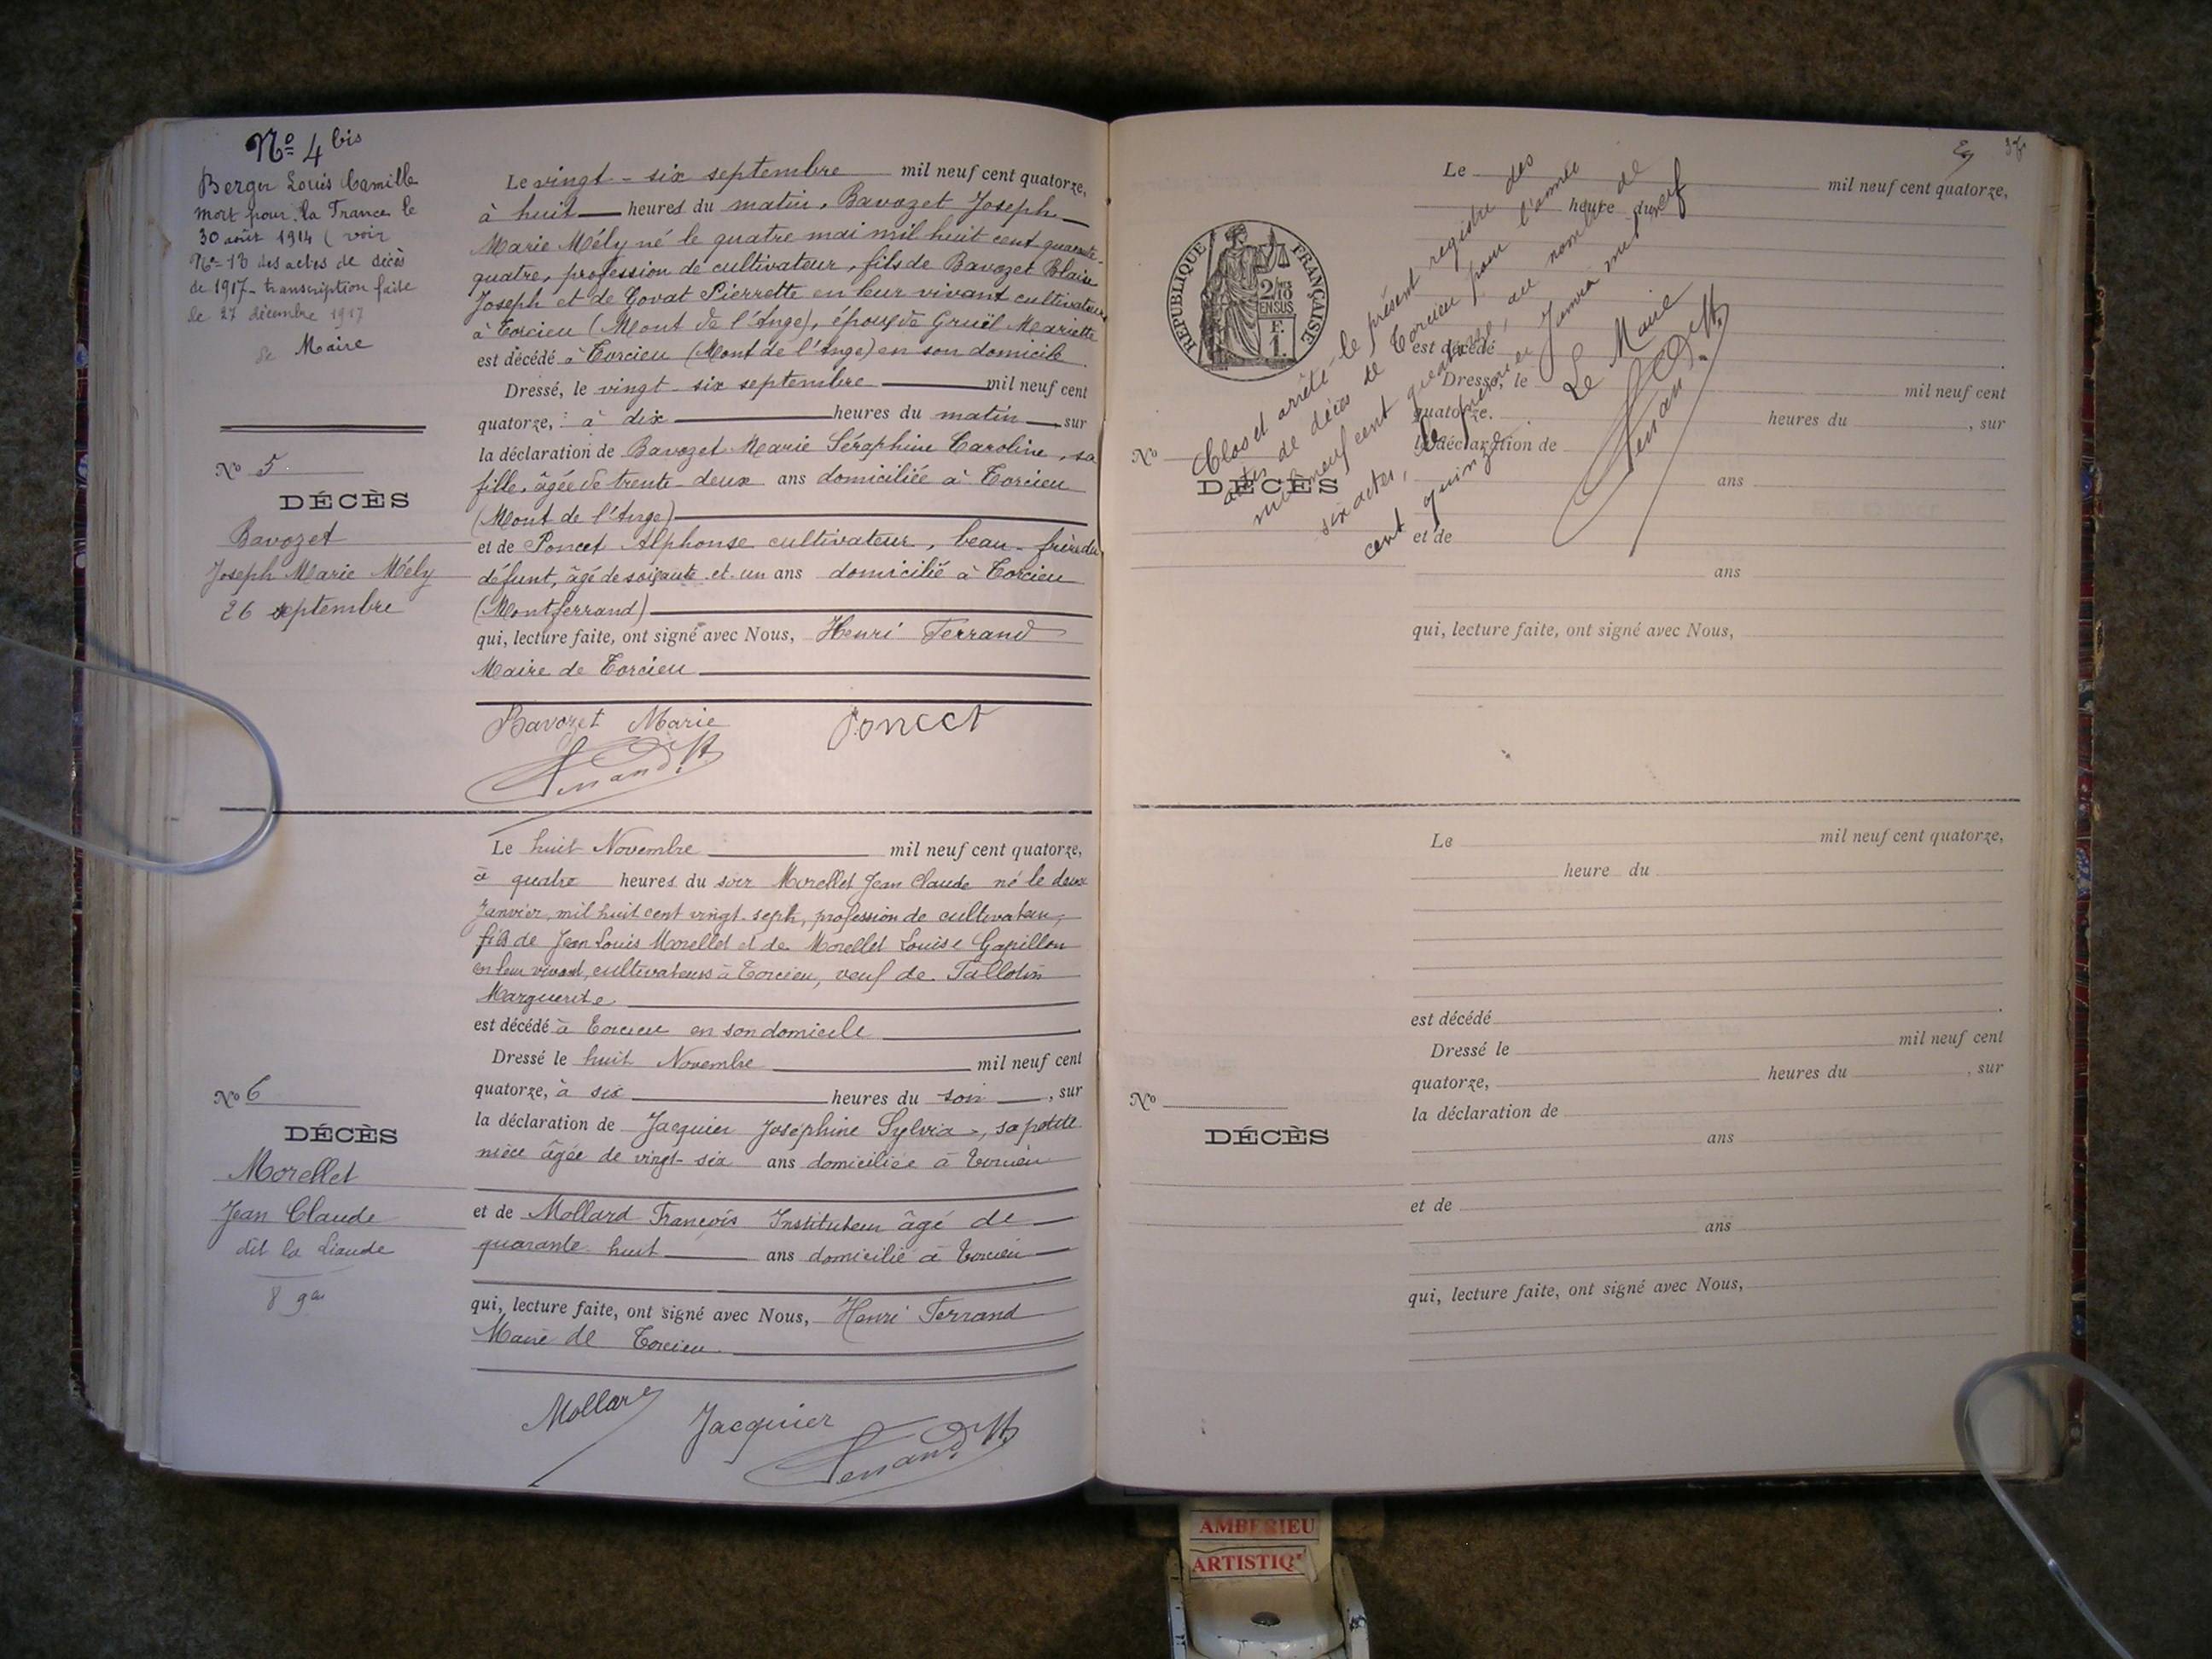 Nº 4 bis
Berger Louis Camille
mort pour la France le
30 août 1914 ( voir
Nº 13 des actes de décès
de 1917 - transcription faite
le 27 décembre 1917
le Maire
Le vingt-six septembre mil neuf cent quatorze,
à huit heures du matin, Bavozet Joseph
Marie Mély né le quatre mai mil huit cent quarante-
quatre, profession de cultivateur, fils de Bavozet Blaise
Joseph et de Govat Pierrette en leur vivant cultivateurs
à Torcieu (Mont de l'Ange), époux de Gruël Mariette
est décédé à Torcieu (Mont de l'Ange) en son domicile.
Dressé, le vingt-six septembre mil neuf cent
quatorze, à dix heures du matin, sur
la déclaration de Bavozet Marie Séraphine Caroline, sa
fille, âgée de trente-deux ans domiciliée à Torcieu
(Mont de l'Ange)
et de Poncet Alphonse cultivateur, beau-frère du
défunt, âgé de soixante et un ans domicilié à Torcieu
(Montferrand)
qui, lecture faite, ont signé avec Nous, Henri Ferrand
Maire de Torcieu
Bavozet Marie Poncet
Ferrand H
Nº 5
DÉCÈS
Bavozet
Joseph Marie Mély
26 septembre
Le huit Novembre mil neuf cent quatorze,
à quatre heures du soir Morellet Jean Claude né le deux
Janvier, mil huit cent vingt-sept, profession de cultivateur,
fils de Jean Louis Morellet et de Morellet Louise Gapillon
en leur vivant, cultivateurs à Torcieu, veuf de Tallotin
Marguerite
est décédé à Torcieu en son domicile.
Dressé le huit Novembre mil neuf cent
quatorze, à six heures du soir, sur
la déclaration de Jacquier Joséphine Sylvia, sa petite
nièce âgée de vingt-six ans domiciliée à Torcieu
et de Mollard François Instituteur âgé de
quarante huit ans domicilié à Torcieu
qui, lecture faite, ont signé avec Nous, Henri Ferrand
Maire de Torcieu
Mollard Jacquier
Ferrand H
Nº 6
DÉCÈS
Morellet
Jean Claude
dit la Liaude
Le mil neuf cent quatorze,
heure du
est décédé .
Dressé, le mil neuf cent
quatorze. heures du , sur
la déclaration de
ans
et de
ans
qui, lecture faite, ont signé avec Nous,
RÉPUBLIQUE FRANÇAISE
2/10
EN SUS
F.
1.
Nº
DÉCÈS
Clos et arrêté le présent registre des
actes de décès de Torcieu pour l'année
mil neuf cent quatorze, au nombre de
six actes, le premier Janvier mil neuf
cent quinze.
Le Maire
Ferrand H
Le mil neuf cent quatorze,
heure du
est décédé .
Dressé le mil neuf cent
quatorze, heures du , sur
la déclaration de
ans
et de
ans
qui, lecture faite, ont signé avec Nous,
Nº
DÉCÈS
AMBERIEU
ARTISTIQ